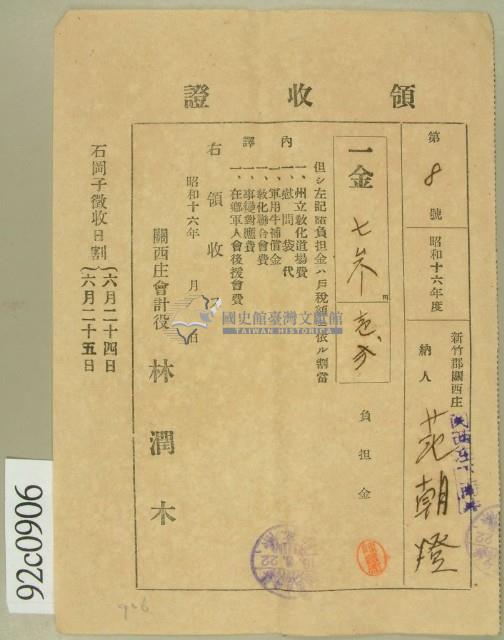 領收證
第8號
昭和十六年度
新竹郡關西庄
納人 范朝燈
一金
負担金
但シ左記諸負担金ハ戶稅額ニ依ル割當
內譯
一、州立敎化道場費
一、慰問袋代
一、軍用牛補償金
一、敎化聯合會費
一、事變對應費
一、在鄉軍人會後援會費
右領收
昭和十六年 月 日
關西庄會計役 林潤木
石岡子徵收日割
六月二十四日
六月二十五日
國史館臺灣文獻館
TAIWAN HISTORICA
92c0906